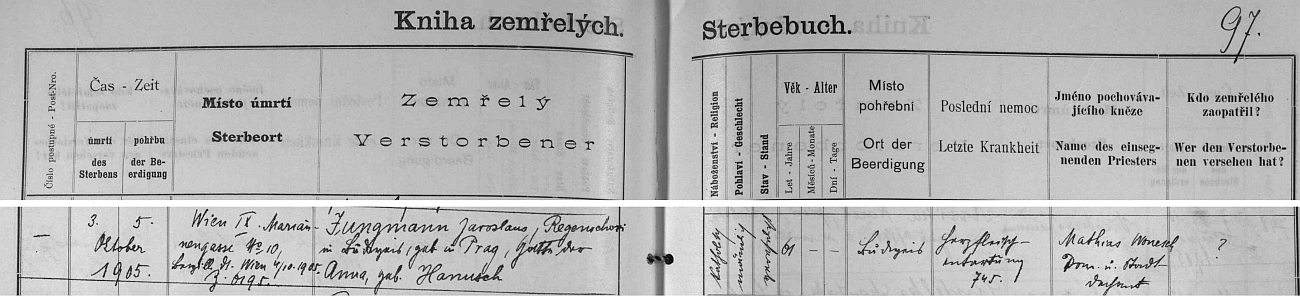 Kniha zemřelých.
Sterbebuch.
97.
Číslo postupné - Post-Nro.
Čas - Zeit
úmrtí
des
Sterbens
pohřbu
der Be-
erdigung
Místo úmrtí
Sterbeort
Zemřelý
Verstorbener
Náboženství - Religion
Pohlaví - Geschlecht
Stav - Stand
Věk - Alter
Let - Jahre
Měsíců - Monate
Dní - Tage
Místo
pohřební
Ort der
Beerdigung
Poslední nemoc
Letzte Krankheit
Jméno pochováva-
jícího kněze
Name des einseg-
nenden Priesters
Kdo zemřelého
zaopatřil?
Wer den Verstorbe-
nen versehen hat?
—
3. 5.
Oktober
1905.
Wien IX. Marian-
nengasse No 10,
Wien 4/10 1905
Jungmann Jaroslaus, Regenschori
in Budweis, geb. in Prag, Gatte der
Anna, geb. Hanusch
katholisch
männlich
61 — —
Budweis
Herzfleisch-
entartung
745.
Mathias
Dom. u. Stadt
dechant
?